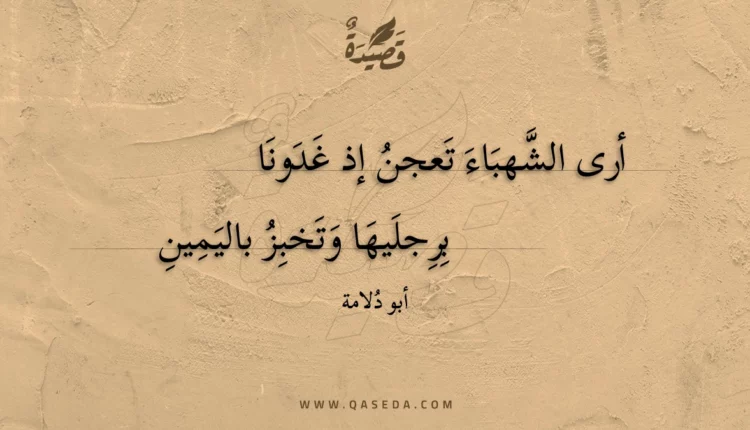 قَصِيْدَةٌ
أرى الشَّهبَاءَ تَعجنُ إذ غَدَونَا
بِرِجلَيهَا وَتَخبِزُ باليَمِينِ
أبو دُلامة
WWW.QASEDA.COM